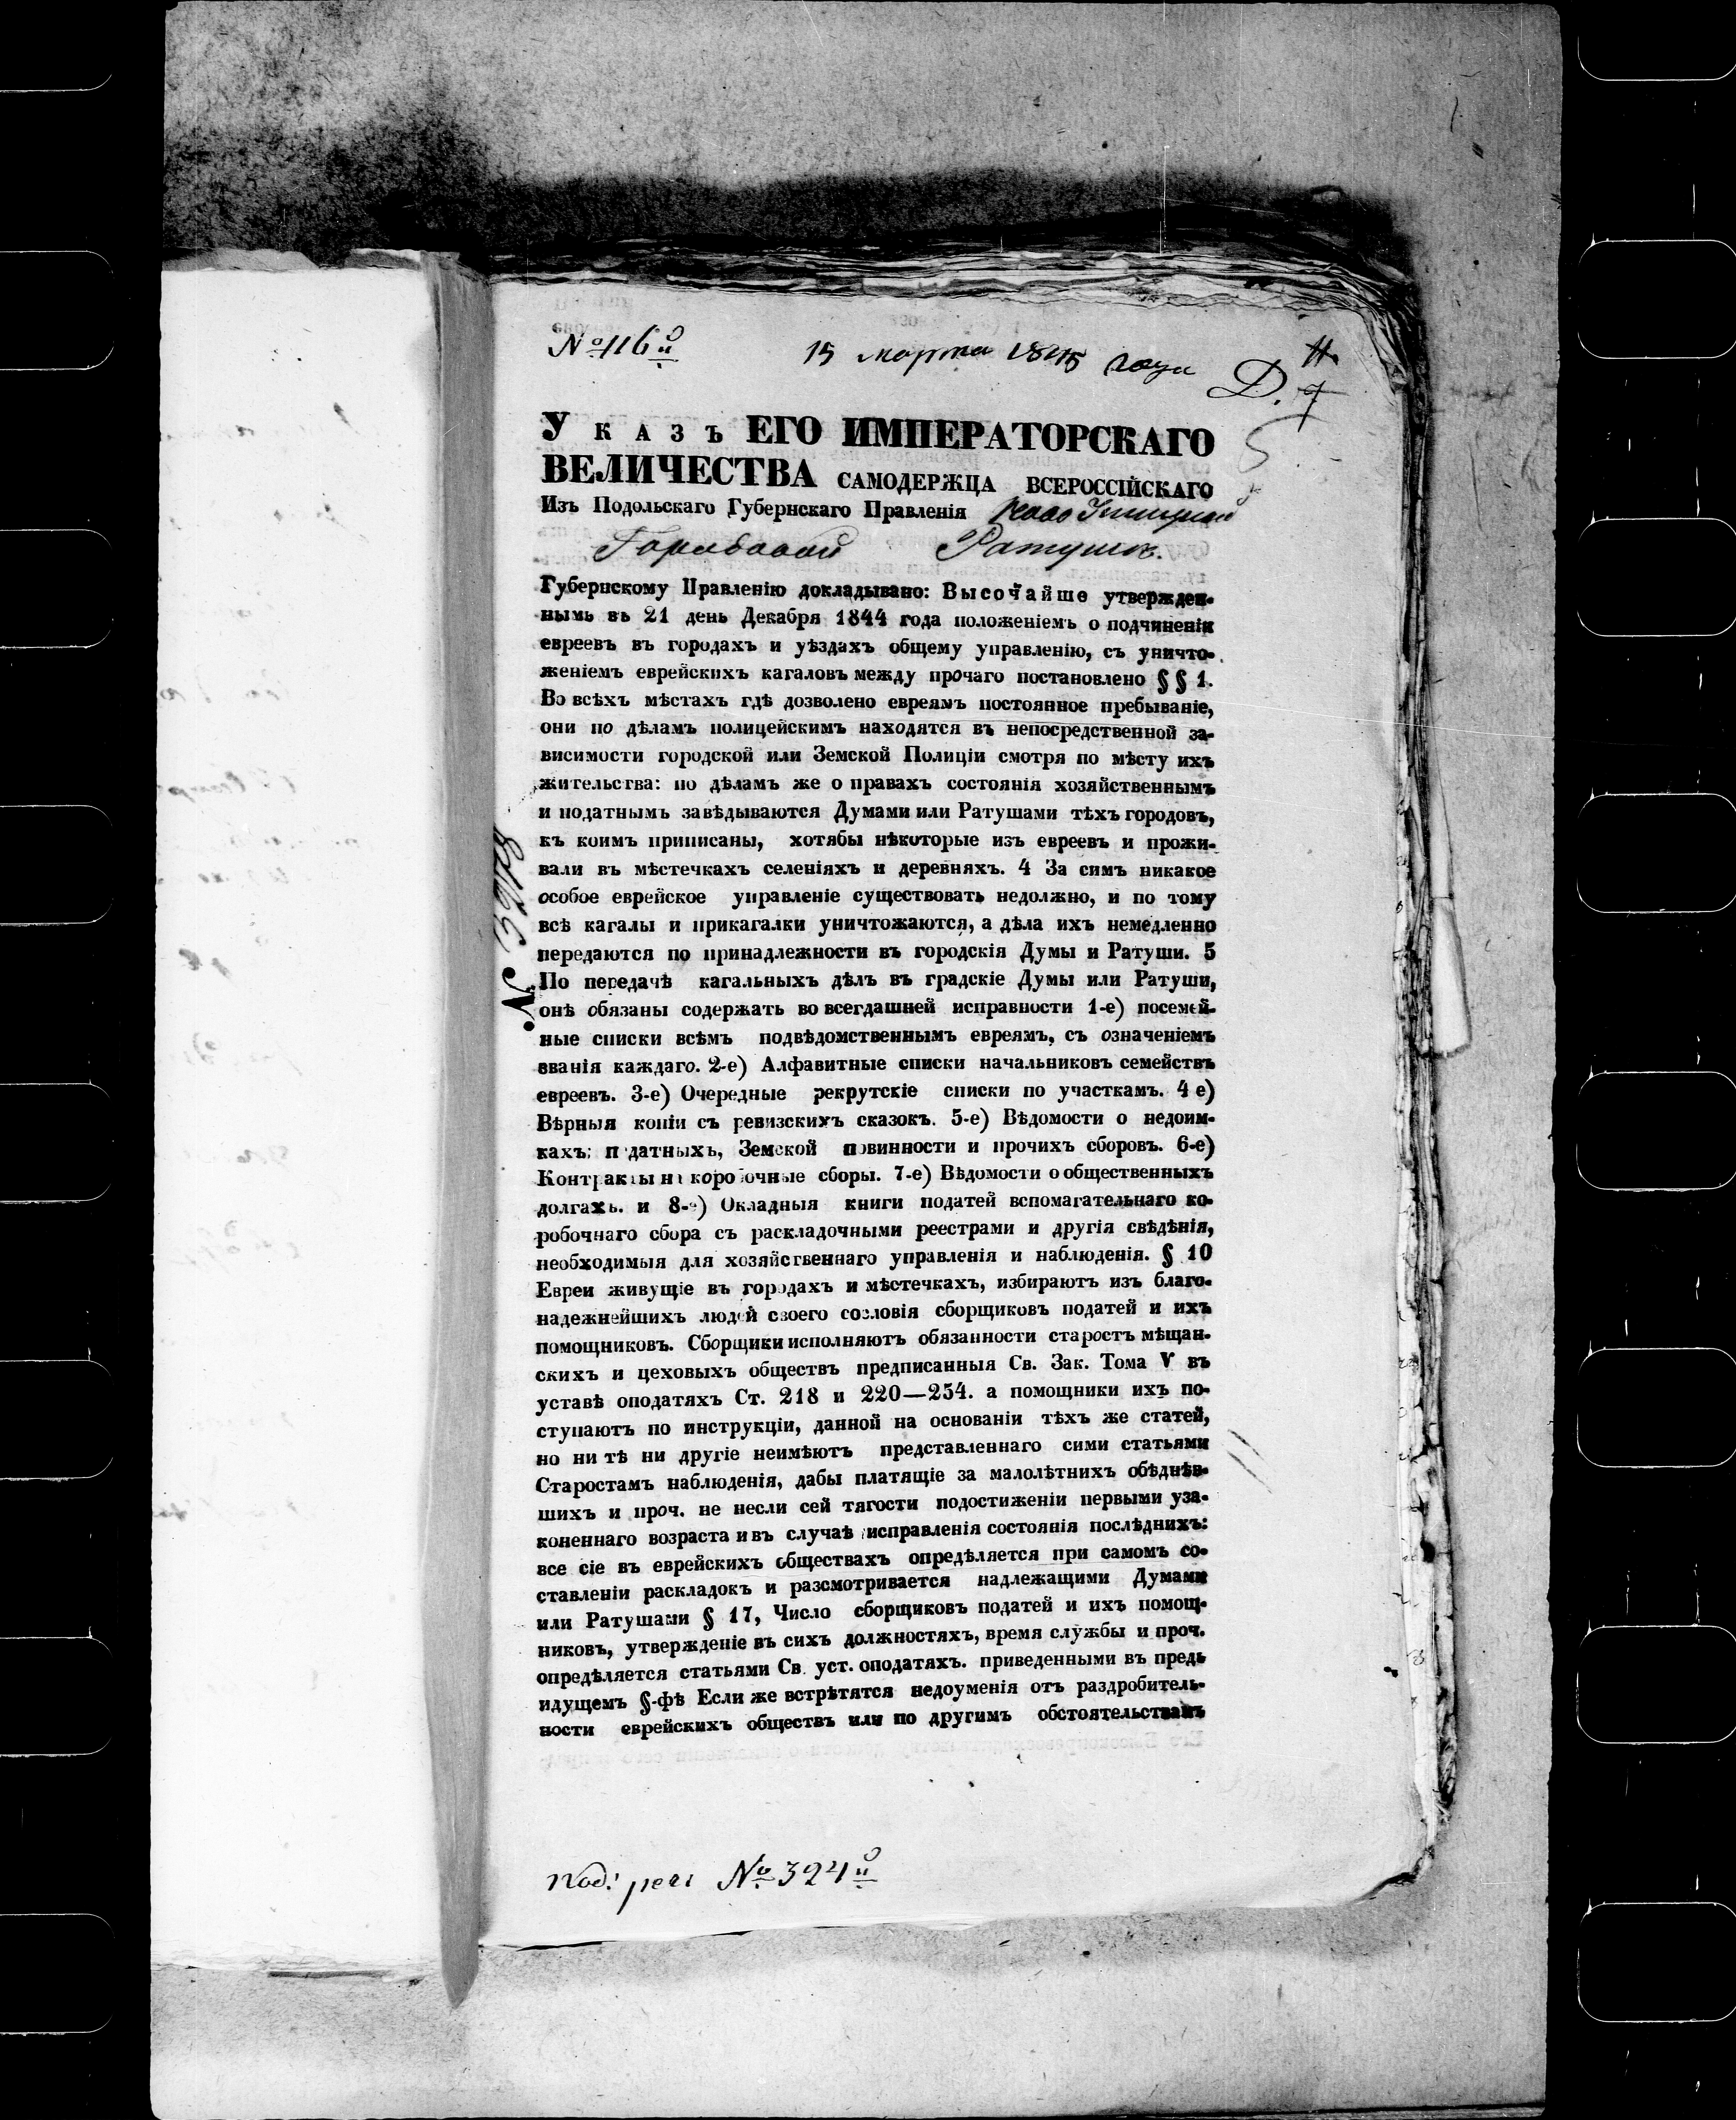 № 116й
15 марта 1845 года
Д. 7
У К А З Ъ ЕГО ИМПЕРАТОРСКАГО
ВЕЛИЧЕСТВА САМОДЕРЖЦА ВСЕРОССІЙСКАГО
Изъ Подольскаго Губернскаго Правленія Ново Ушицкой
Городовой Ратуше.
Губернскому Правленію докладывано: Высочайше утвержден-
нымь въ 21 день Декабря 1844 года положеніемъ о подчиненіи
евреевъ въ городахъ и уѣздахъ общему управленію, съ уничто-
женіемъ еврейскихъ кагаловъ между прочаго постановлено § § 1.
Во всѣхъ мѣстахъ гдѣ дозволено евреямъ постоянное пребываніе,
они по дѣламъ полицейскимъ находятся въ непосредственной за-
висимости городской или Земской Полиціи смотря по мѣсту ихъ
жительства: по дѣламъ же о правахъ состоянія хозяйственнымъ
и податнымъ завѣдываются Думами или Ратушами тѣхъ городовъ,
къ коимъ приписаны, хотябы нѣкоторые изъ евреевъ и прожи-
вали въ мѣстечкахъ селеніяхъ и деревняхъ. 4 За симъ никакое
особое еврейское управленіе существовать недолжно, и по тому
всѣ кагалы и прикагалки уничтожаются, а дѣла ихъ немедленно
передаются по принадлежности въ городскія Думы и Ратуши. 5
По передачѣ кагальныхъ дѣлъ въ градскіе Думы или Ратуши,
онѣ обязаны содержать во всегдашней исправности 1-е) посемей-
ные списки всѣмъ подвѣдомственнымъ евреямъ, съ означеніемъ
званія каждаго. 2-е) Алфавитные списки начальниковъ семействъ
евреевъ. 3-е) Очередные рекрутскіе списки по участкамъ. 4 е)
Вѣрныя копіи съ ревизскихъ сказокъ. 5-е) Вѣдомости о недоим-
кахъ: податныхъ, Земской повинности и прочихъ сборовъ. 6-е)
Контракты на коробочные сборы. 7-е) Вѣдомости о общественныхъ
долгахъ. и 8-е) Окладныя книги податей вспомагательнаго ко-
робочнаго сбора съ раскладочными реестрами и другія свѣдѣнія,
необходимыя для хозяйственнаго управленія и наблюденія. § 10
Евреи живущіе въ городахъ и мѣстечкахъ, избираютъ изъ благо-
надежнейшихъ людей своего сословія сборщиковъ податей и ихъ
помощниковъ. Сборщики исполняютъ обязанности старостъ мѣщан-
скихъ и цеховыхъ обществъ предписанныя Св. Зак. Тома V въ
уставѣ оподатяхъ Ст. 218 и 220—254. а помощники ихъ по-
ступаютъ по инструкціи, данной на основаніи тѣхъ же статей,
но ни тѣ ни другіе неимѣютъ представленнаго сими статьями
Старостамъ наблюденія, дабы платящіе за малолѣтнихъ обѣднѣв-
шихъ и проч. не несли сей тягости подостиженіи первыми уза-
коненнаго возраста и въ случаѣ исправленія состоянія послѣднихъ:
все сіе въ еврейскихъ обществахъ опредѣляется при самомъ со-
ставленіи раскладокъ и разсмотривается надлежащими Думами
или Ратушами § 17, Число сборщиковъ податей и ихъ помощ-
никовъ, утвержденіе въ сихъ должностяхъ, время службы и проч.
опредѣляется статьями Св. уст. оподатяхъ. приведенными въ предъ
идущемъ §-фѣ Если же встрѣтятся недоуменія отъ раздробитель-
ности еврейскихъ обществъ или по другимъ обстоятельствамъ
№ 324й